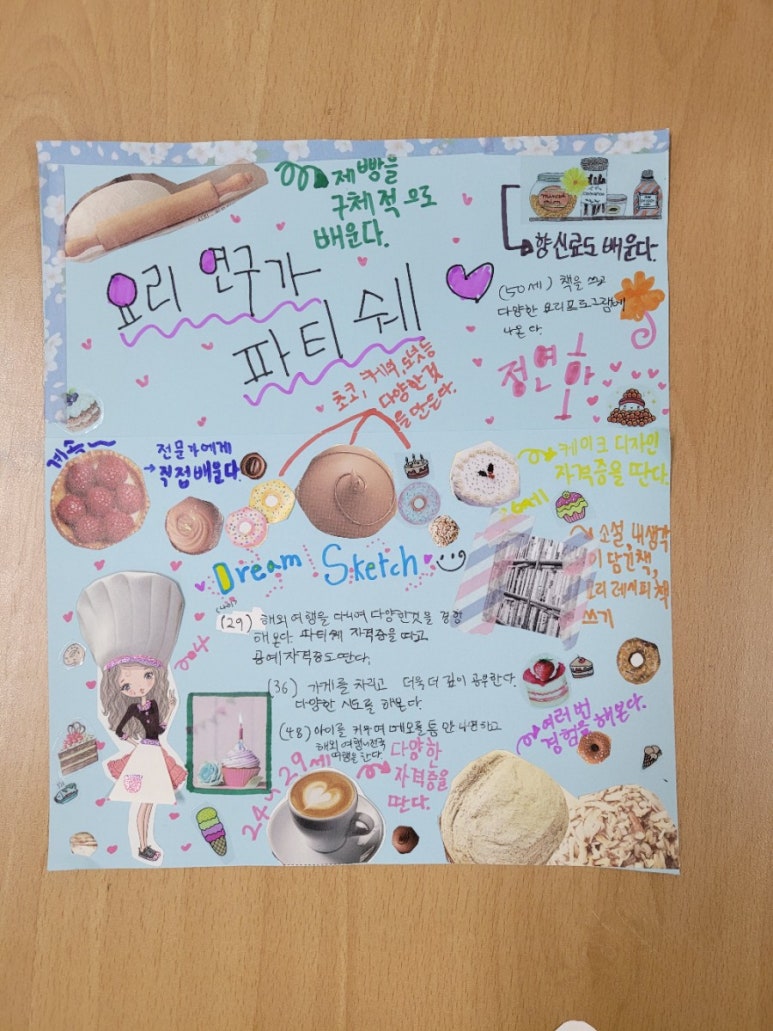 제빵을
구체적으로
배운다.
향신료도 배운다.
요리 연구가
파티쉐
(50세) 책을 쓰고
다양한 요리프로그램에
나온다.
정연화
초코, 케익, 도넛등
다양한것
을 만든다.
계속~
전문가에게
직접배운다.
케이크 디자인
자격증을 딴다.
Dream Sketch
소설, 내생각
이 담긴책,
요리 레시피 책
쓰기
(29) 해외여행을 다니며 다양한것을 경험
해본다. 파티쉐 자격증을 따고
공예자격증도딴다.
(36) 가게를 차리고 더욱 더 깊이 공부한다.
다양한 시도를 해본다.
(48) 아이를 키우며
해외 여행
여행을 한다.
여러 번
경험을 해본다.
24~29세
다양한
자격증을
딴다.